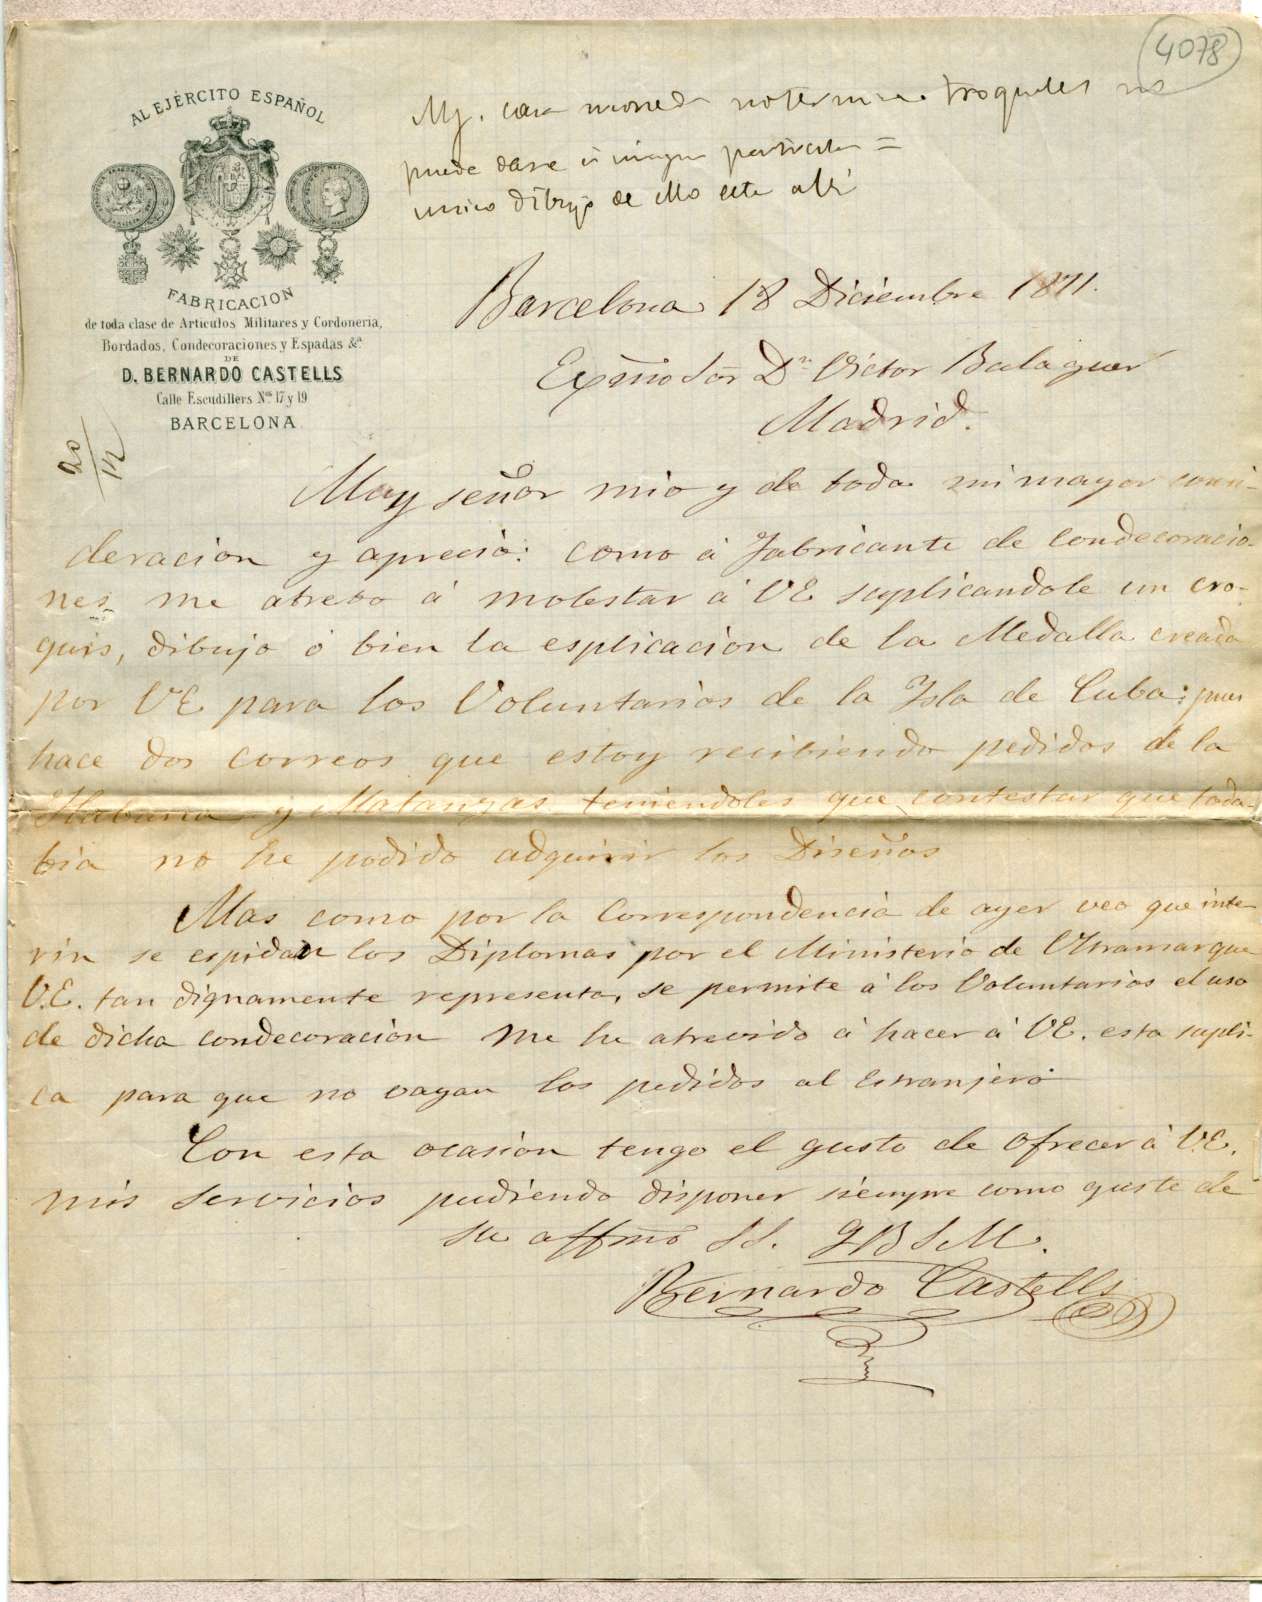 4078
AL EJÉRCITO ESPAÑOL
FABRICACION
de toda clase de Articulos Militares y Cordoneria,
Bordados, Condecoraciones y Espadas &ª
DE
D. BERNARDO CASTELLS
Calle Escudillers Nos 17 y 19
BARCELONA
20/12
casa moneda no termine troqueles no
puede darse á ningun particular =
unico dibujo de ello esta alli
Barcelona 18 Diciembre 1871.
Exmo Sor Dn Victor Balaguer
Madrid.
Muy señor mio y de toda mi mayor consi-
deracion y aprecio: como á fabricante de condecoracio-
nes me atrebo á molestar á VE suplicandole un cro-
quis, dibujo ó bien la esplicacion de la Medalla creada
por VE para los Voluntarios de la Isla de Cuba: pues
hace dos correos que estoy recibiendo pedidos de la
Habana y Matanzas teniendoles que contestar que toda-
bia no he podido adquirir los Diseños
Mas como por la Correspondencia de ayer veo que inte-
rin se espidan los Diplomas por el Ministerio de Ultramar que
V.E. tan dignamente representa, se permite á los Voluntarios el uso
de dicha condecoracion me he atrevido á hacer á VE. esta supli-
ca para que no vayan los pedidos al Estranjero
Con esta ocasion tengo el gusto de ofrecer á V.E.
mis servicios pudiendo disponer siempre como guste de
su affmo SS. QBSM.
Bernardo Castells